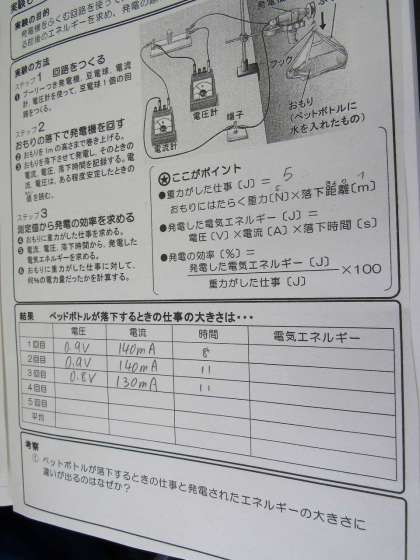 実験の目的
発電機をふくむ回路を使って
実験の方法
ステップ1 回路をつくる
❶プーリーつき発電機、豆電球、電流
計、電圧計を使って、豆電球1個の回
路をつくる。
ステップ2
おもりの落下で発電機を回す
❷おもりを1mの高さまで巻き上げる。
❸おもりを落下させて発電し、そのときの
電流、電圧、落下時間を記録する。電
流、電圧は、ある程度安定したときの
値を読む。
ステップ3
測定値から発電の効率を求める
❹おもりに重力がした仕事を求める。
❺電流、電圧、落下時間から、発電した
電気エネルギーを求める。
❻おもりに重力がした仕事に対して、
何%の電力量だったかを計算する。
フック
おもり
(ペットボトルに
水を入れたもの)
端子
電圧計
電流計
ここがポイント
●重力がした仕事〔J〕= 5
おもりにはたらく重力〔N〕×落下距離〔m〕
●発電した電気エネルギー〔J〕=
電圧〔V〕×電流〔A〕×落下時間〔s〕
●発電の効率〔%〕=
発電した電気エネルギー〔J〕
重力がした仕事〔J〕
×100
結果 ペッドボトルが落下するときの仕事の大きさは・・・
電圧 電流 時間 電気エネルギー
1回目 0.9V 140mA 8
2回目 0.9V 140mA 11
3回目 0.8V 130mA 11
4回目
5回目
平均
考察
① ペットボトルが落下するときの仕事と発電されたエネルギーの大きさに
違いが出るのはなぜか?